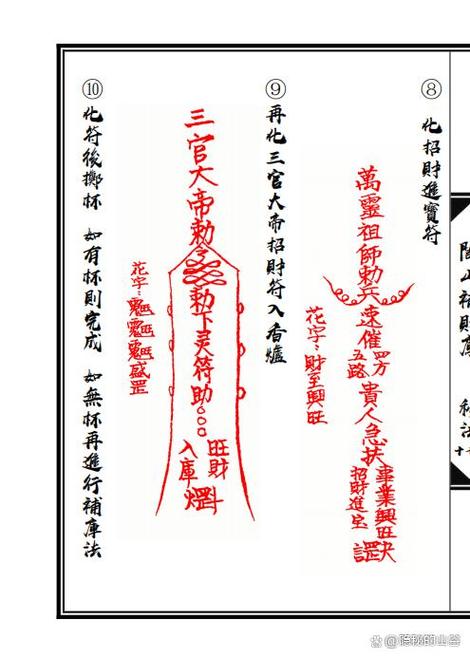 ⑧
化招財進寶符
萬靈祖師勅
兵
速催
四方
五路
貴人急扶
事業興旺
招財進宝
花字：財至興旺
⑨
再化三官大帝招財符入香爐
三官大帝勅令
勅下灵符助○○○
旺財
入庫
花字：
⑩
化符後擲杯 如有杯則完成 如無杯再進行補庫法
閭山補財庫
秘法
@隐秘的山谷